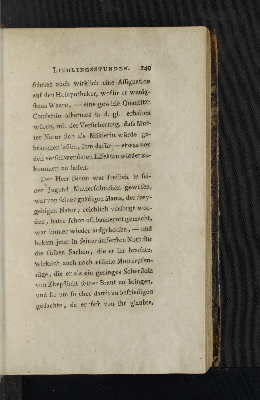 LIEBLINGSSTUNDEN. 249
schickte auch wirklich eine Assignation
auf den Hofapotheker, wofür er wenig-
stens Waare, — eine gewisse Quantität
Confectio alkermes u. d. gl. erhalten
würde, mit der Versicherung, daß Mut-
ter Natur sich als Mäklerin würde ge-
brauchen laßen, ihm dafür — etwas von
den verschwendeten Effekten wieder zu-
kommen zu lassen.
Der Herr Baron war freilich in sei-
ner Jugend Muttersöhnchen gewesen,
war von seiner gnädigen Mama, der frey-
gebigen Natur, reichlich versorgt wor-
den, hatte schon oft banquerot gemacht,
war immer wieder aufgeholfen, — und
bekam jetzt in seiner äußersten Noth für
die süßen Sachen, die er ihr brachte,
wirklich auch noch etliche Mutterpfen-
nige, die er als ein geringes Scherflein
von Ehepflicht seiner Braut zu bringen,
und sie um so eher damit zu befriedigen
gedachte, da er fest von ihr glaubte,